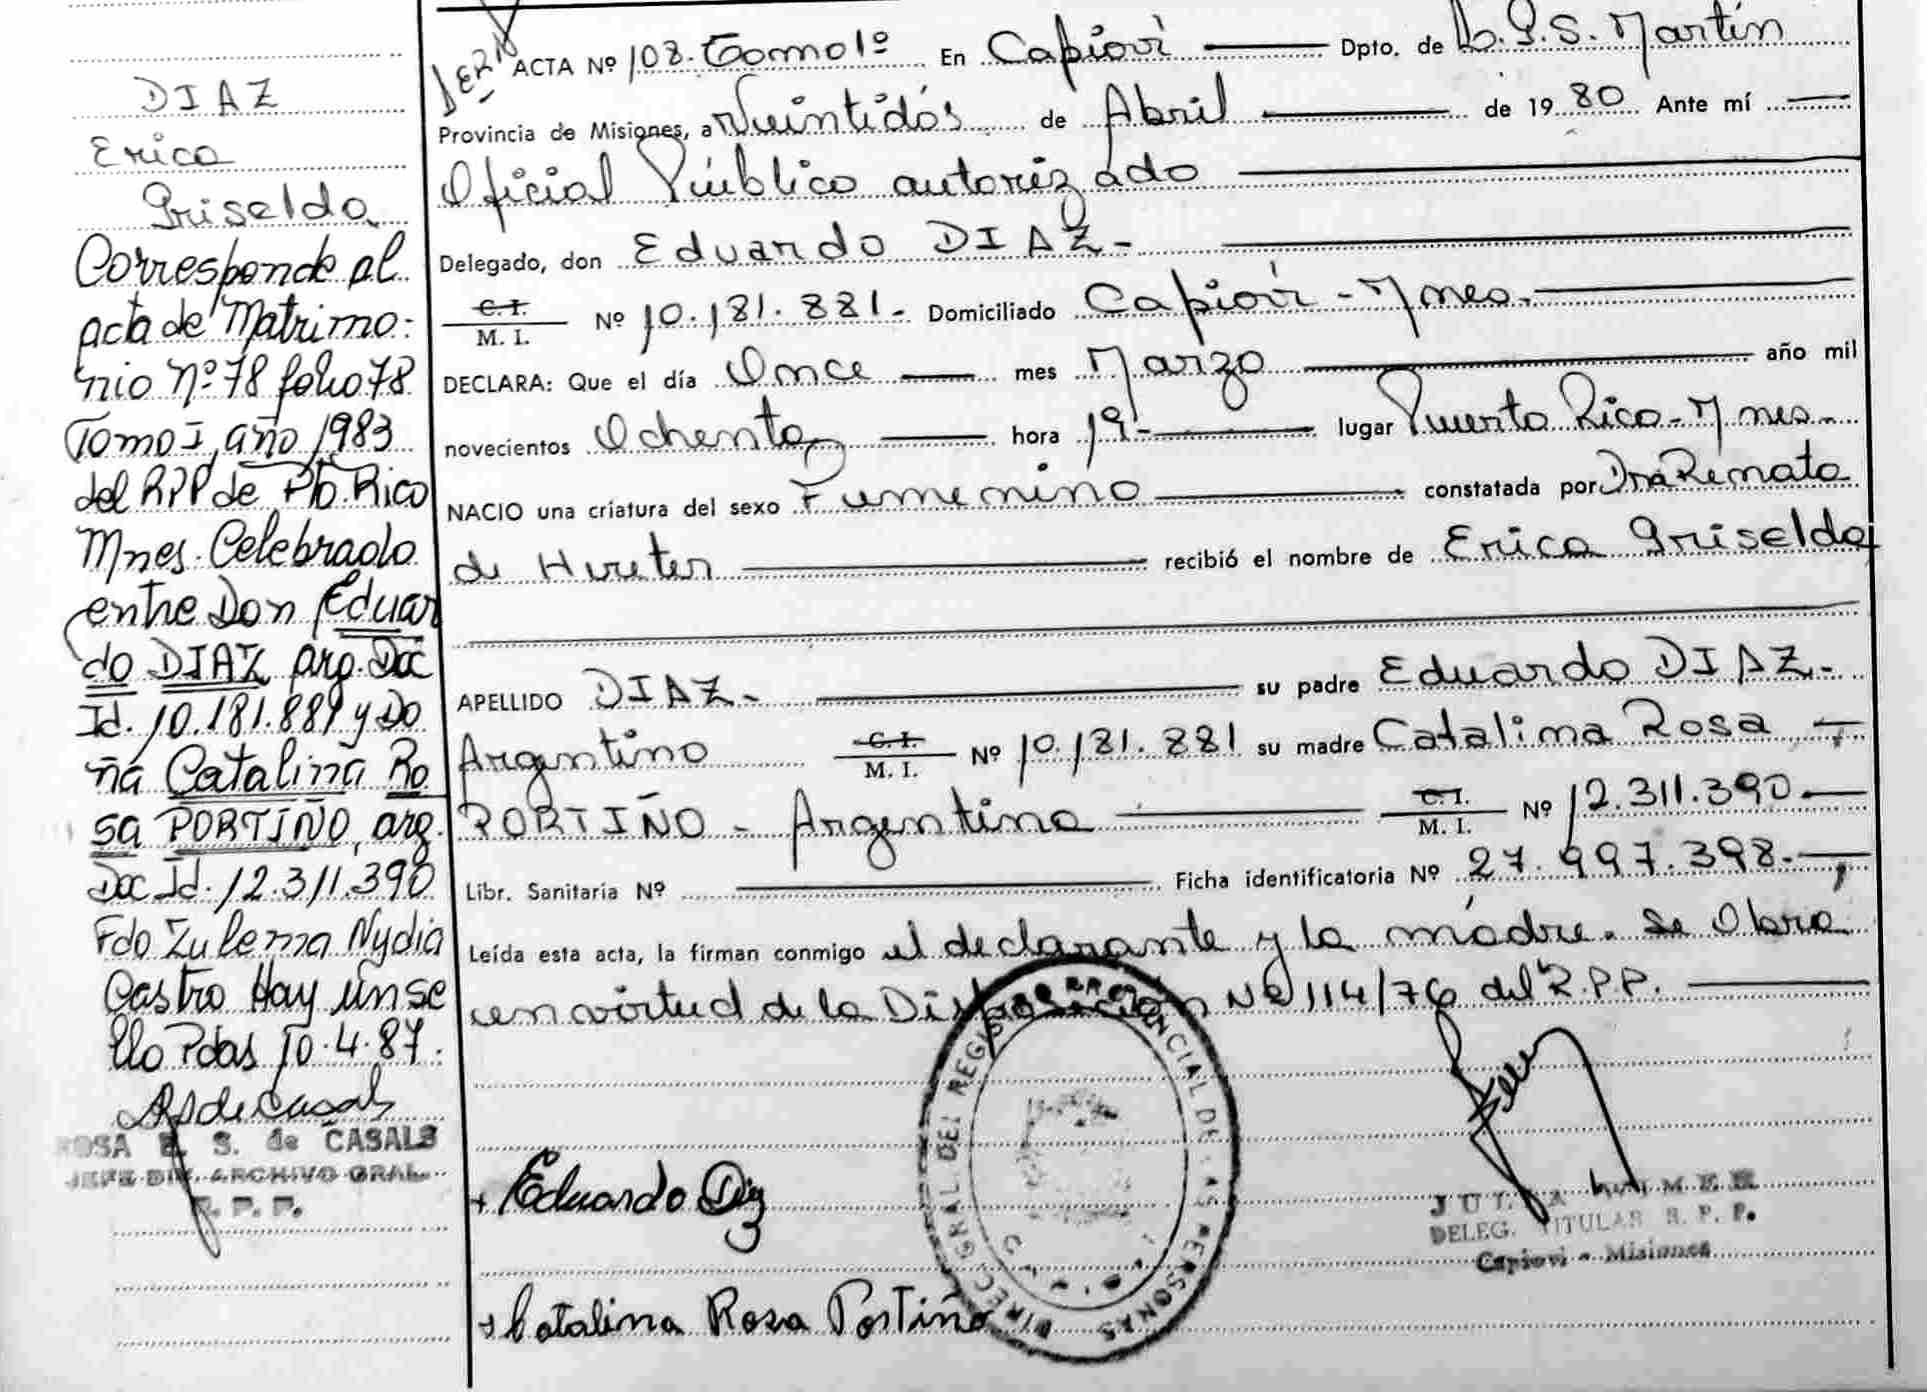 DIAZ
Erica
Griselda
Corresponde al
acta de Matrimo-
nio Nº 78 folio 78
Tomo I, año 1983
del RPP de Pto. Rico
Mnes. Celebrado
entre Don Eduar
do DIAZ arg. Doc
Id. 10.181.881 y Do
ña Catalina Ro
sa PORTIÑO, arg.
Doc Id. 12.311.390
Fdo Zulema Nydia
Castro Hay un se
llo Pdas 10.4.87.
ROSA E. S. de CASALS
JEFE DIV. ARCHIVO GRAL.
R. P. P.
ACTA Nº 108. Tomo 1º En Capioví Dpto. de L. G. S. Martín
Provincia de Misiones, a Veintidós de Abril de 1980 Ante mí
Oficial Público autorizado
Delegado, don Eduardo DIAZ-
C. I.
M. I. Nº 10.181.881- Domiciliado Capioví - Mnes.
DECLARA: Que el día Once mes Marzo año mil
novecientos Ochenta hora 19- lugar Puerto Rico- Mnes.
NACIO una criatura del sexo Femenino constatada por Dra Renata
de Hureter recibió el nombre de Erica Griselda
APELLIDO DIAZ- su padre Eduardo DIAZ-
Argentino C. I.
M. I. Nº 10.181.881 su madre Catalina Rosa
PORTIÑO - Argentina C. I.
M. I. Nº 12.311.390
Libr. Sanitaria Nº Ficha identificatoria Nº 27.997.398.-
Leída esta acta, la firman conmigo el declarante y la madre. Se Obra
en virtud de la Disposición Nº 114/76 del R.P.P.
DIREC. GRAL DEL REGISTRO PROVINCIAL DE LAS PERSONAS
Eduardo Diaz
DELEG. TITULAR R. P. P.
Capioví - Misiones
Catalina Rosa Portiño